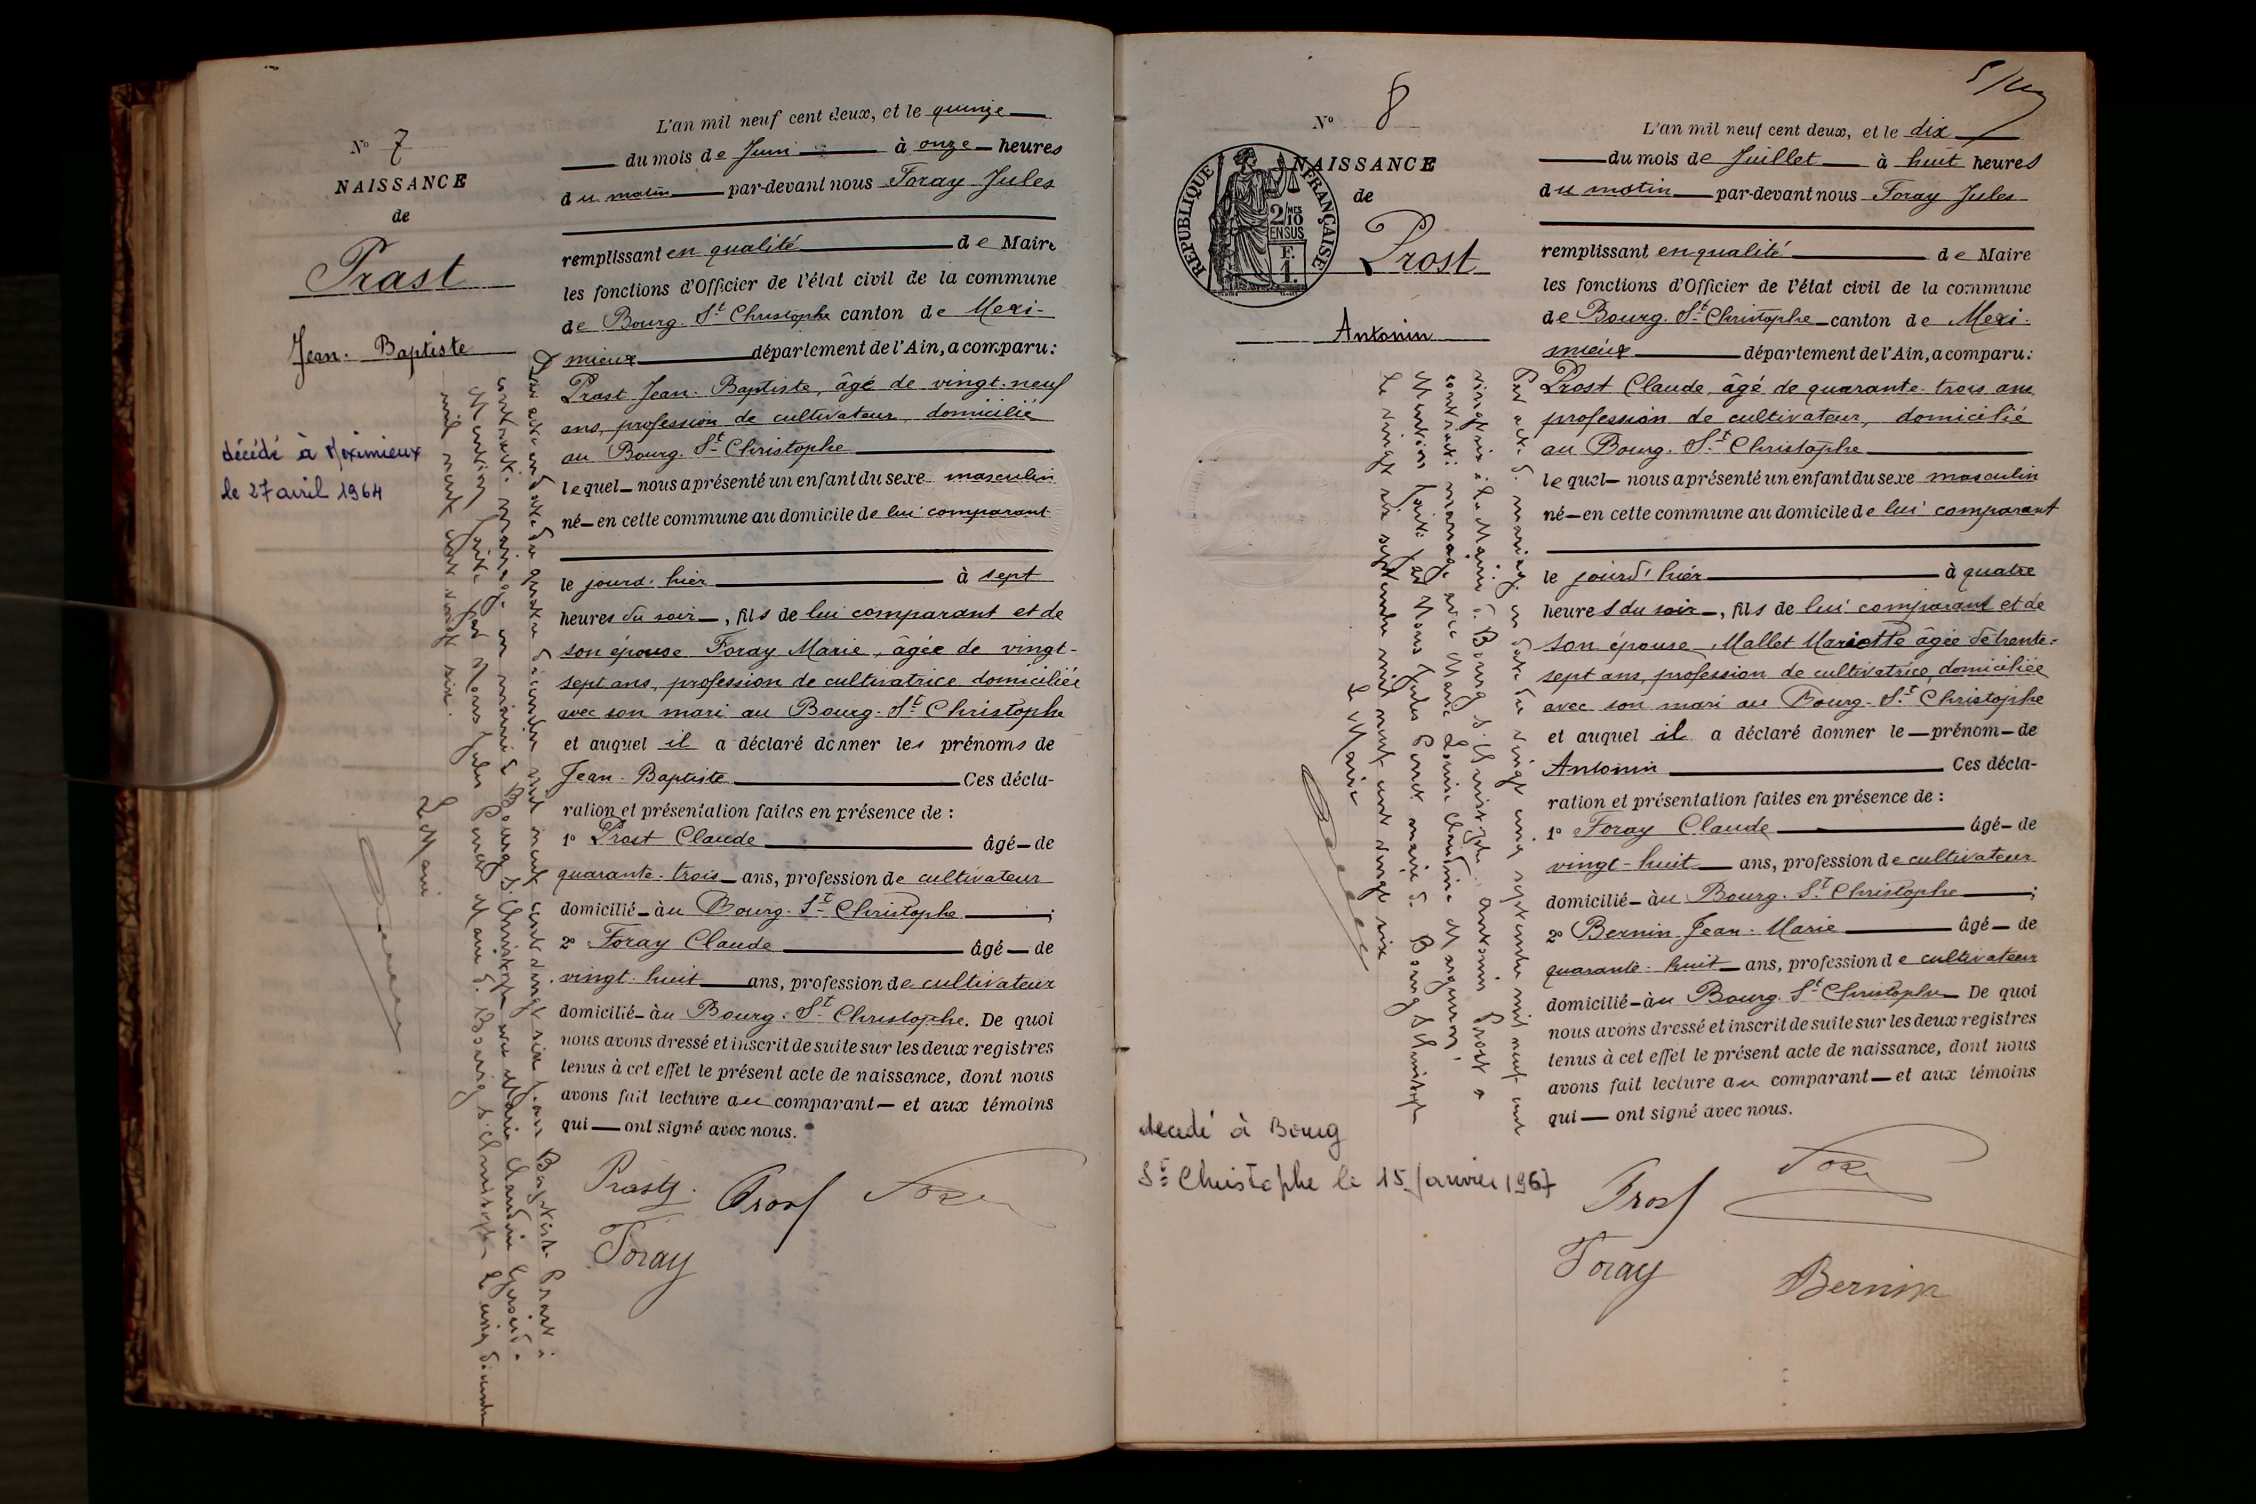 Nº 7
NAISSANCE
de
Prast
Jean-Baptiste
décédé à Meximieux
le 27 avril 1964
L'an mil neuf cent deux, et le quinze
du mois de Juin à onze heures
du matin par-devant nous Foray Jules
remplissant en qualité de Maire
les fonctions d'Officier de l'état civil de la commune
de Bourg-St Christophe canton de Mexi-
mieux département de l'Ain, a comparu:
Prast Jean-Baptiste, âgé de vingt-neuf
ans, profession de cultivateur, domicilié
au Bourg-St Christophe
lequel nous a présenté un enfant du sexe masculin
né en cette commune au domicile de lui comparant
le jourd'hier à sept
heures du soir, fils de lui comparant et de
son épouse Foray Marie, âgée de vingt-
sept ans, profession de cultivatrice domiciliée
avec son mari au Bourg-St Christophe
et auquel il a déclaré donner les prénoms de
Jean-Baptiste Ces décla-
ration et présentation faites en présence de :
1º Prost Claude âgé de
quarante-trois ans, profession de cultivateur
domicilié au Bourg-St Christophe ;
2º Foray Claude âgé de
vingt-huit ans, profession de cultivateur
domicilié au Bourg-St Christophe. De quoi
nous avons dressé et inscrit de suite sur les deux registres
tenus à cet effet le présent acte de naissance, dont nous
avons fait lecture au comparant et aux témoins
qui ont signé avec nous.
Par acte en date du quatre décembre mil neuf cent vingt six Jean Baptiste Prast a
contracté mariage en mairie de Bourg St Christophe avec Marie Claudine
Mention faite par Nous Jules Maire de Bourg St Christophe le cinq décembre
mil neuf cent vingt six.
Le Maire
Prast J. Prost
Foray
5
Nº 8
NAISSANCE
de
REPUBLIQUE FRANÇAISE
2/10 MES
EN SUS
F.
1.
Prost
Antonin
L'an mil neuf cent deux, et le dix
du mois de Juillet à huit heures
du matin par-devant nous Foray Jules
remplissant en qualité de Maire
les fonctions d'Officier de l'état civil de la commune
de Bourg-St Christophe canton de Mexi-
mieux département de l'Ain, a comparu:
Prost Claude, âgé de quarante-trois ans
profession de cultivateur, domicilié
au Bourg-St Christophe
lequel nous a présenté un enfant du sexe masculin
né en cette commune au domicile de lui comparant
le jourd'hier à quatre
heures du soir, fils de lui comparant et de
son épouse, Mallet Mariette âgée de trente-
sept ans, profession de cultivatrice, domiciliée
avec son mari au Bourg-St Christophe
et auquel il a déclaré donner le prénom de
Antonin Ces décla-
ration et présentation faites en présence de :
1º Foray Claude âgé de
vingt-huit ans, profession de cultivateur
domicilié au Bourg-St Christophe ;
2º Bernin Jean-Marie âgé de
quarante-huit ans, profession de cultivateur
domicilié au Bourg-St Christophe De quoi
nous avons dressé et inscrit de suite sur les deux registres
tenus à cet effet le présent acte de naissance, dont nous
avons fait lecture au comparant et aux témoins
qui ont signé avec nous.
Par acte de mariage en date du vingt cinq septembre mil neuf cent
vingt six à la Mairie de Bourg St Christophe Antonin Prost a
contracté mariage avec Marie Louise Claudine
Mention faite par Nous Jules maire de Bourg St Christophe
le vingt six septembre mil neuf cent vingt six
Le Maire
décédé à Bourg
St Christophe le 15 Janvier 1967
Prost
Foray
Bernin